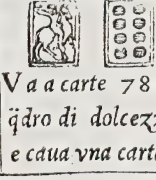 V a a carte 78
q̃dro di dolcezz
e caua vna cart